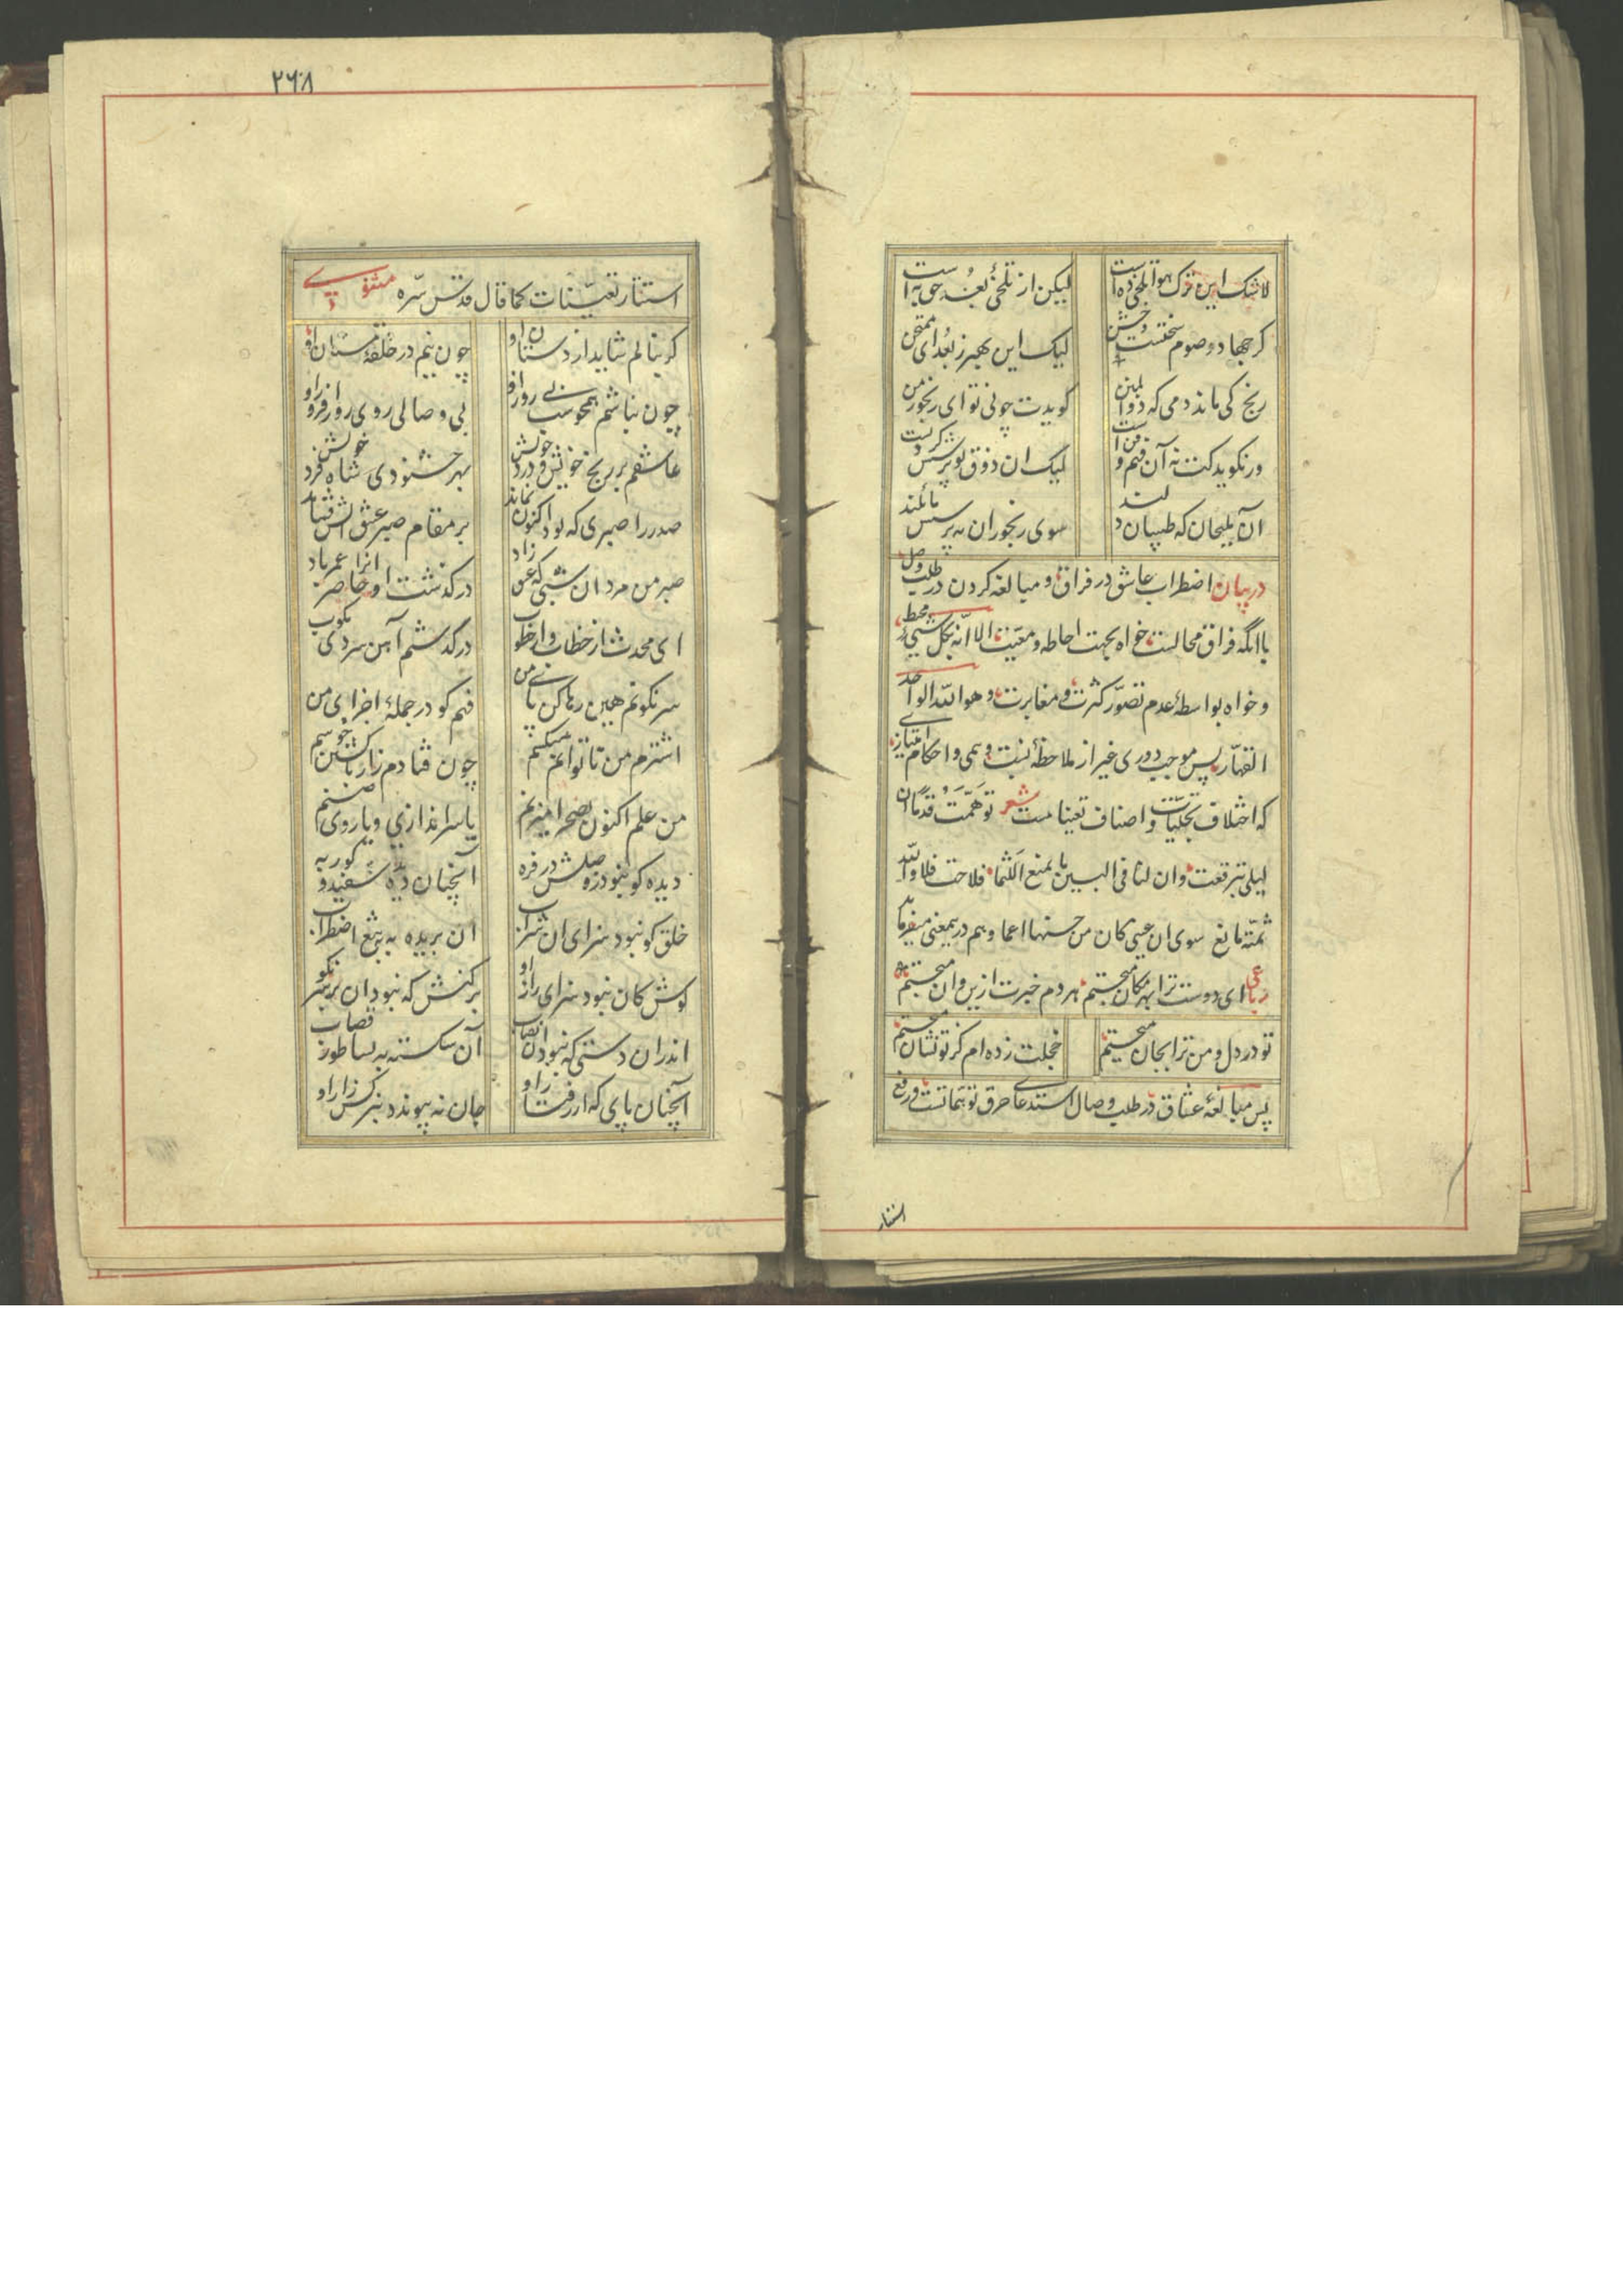 لاشک این ترک هوا تلخی ده است لیکن از تلخی بعد حق به است
کر جهاد و صوم سختست و خشن لیک این بهتر ز بعد ای ممتحن
رنج کی ماند دمی که ذو المنن کویدت چونی تو ای رنجور من
ور نکوید کت نه آن فهم و فن است لیک ان ذوق تو پرسش کردنست
آن ملیحان که طبیبان دلند سوی رنجوران به پرسش مائلند
در بیان اضطراب عاشق در فراق و مبالغه کردن در طلب وصل
با انکه فراق محالست خواه بجهت احاطه و معیّت الا انّه بکل شیی محیط
و خواه بواسطهٔ عدم تصوّر کثرت و مغایرت و هو اللّه الواحد
القهّار پس موجب دوری غیر از ملاحظهٔ نسبت وهمی و احکام امتیازی
که اختلاف تجلیّات و اصناف تعینا مست شعر توهّمت قدما ان
لیلی تبرقعت وان لنا فی البین ما یمنع اللثما فلاحت فلا واللّه
ثمّة مانع سوی ان عینی کان من حسنها اعما وهم دریمعنی میفرماید
رباعی ای دوست ترا بهر مکان میجستم هر دم خبرت ازین و ان میجستم
تو در دل و من ترا بجان میجستم خجلت زده ام کز تو نشان میجستم
پس مبالغهٔ عشاق در طلب وصال استدعای حرق توهماتست و رفع
استتار
۲۶۸
استتار تعیّنات کما قال قدّس سرّه مثنوی
کر بنالم شاید از دستان او چون نیم در حلقهٔ مستان او
چون نباشم همچو شب بی روز او بی وصالی روی روز افروز او
عاشقم بر رنج خویش و درد خویش بهر خشنودی شاه فرد خویش
صدر را صبری که بود اکنون نماند بر مقام صبر عشق اتش فشاند
صبر من مرد ان شبی که عشق زاد درکذشت او حاضر انرا عمر باد
ای محدث از خطاب و از خطوب درکذشتم آهن سردی بکوب
سرنکونم هین رها کن پای من فهم کو در جملهٔ اجزای من
اشترم من تا توانم میکشم چون فتادم زار با کشتن خوشم
من علم اکنون بصحرا میزنم یا سراندازی و یا روی صنم
دیده کو نبود ز وصلش در فره آنچنان دیده سفید و کور به
حلق کو نبود سزای ان شراب ان بریده به به تیغ اضطراب
کوش کان نبود سزای راز او برکنش که نبود ان بر سر نکو
اندران دستی که نبود ان نصاب آن شکسته به بساطور قصاب
آنچنان پای که از رفتار او جان نه پیوندد بنرکس زار او